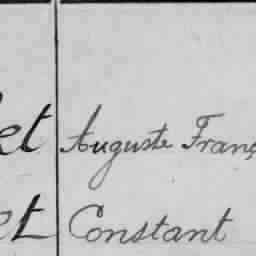 et Auguste Franç
et Constant